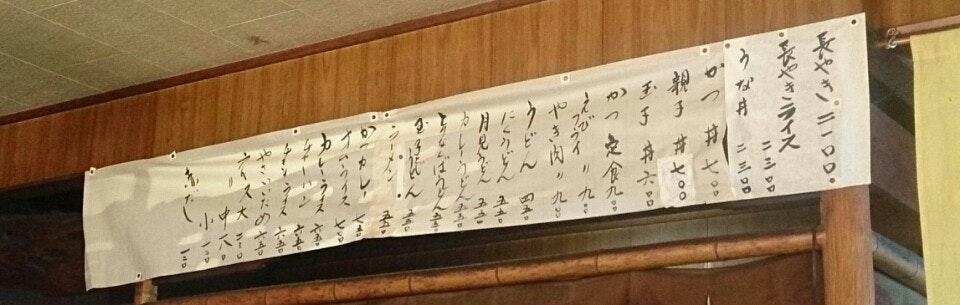 長やき 二一〇〇
長やきライス 二三〇〇
うな丼 二三〇〇
かつ丼 七〇〇
親子丼 七〇〇
玉子丼 六〇〇
かつ定食 九〇〇
えびフライ〃 九〇〇
やき肉〃 九〇〇
うどん 四五〇
にくうどん 五五〇
月見うどん 五五〇
カレーうどん 五五〇
玉子うどん 五五〇
ラーメン 五五〇
かつカレー 七五〇
オムライス 七〇〇
カレーライス 六五〇
チャーハン 六五〇
チキンライス 六五〇
やさいいため 六五〇
ライス 大 二三〇
〃 中 一八〇
〃 小 一三〇
赤だし 一三〇